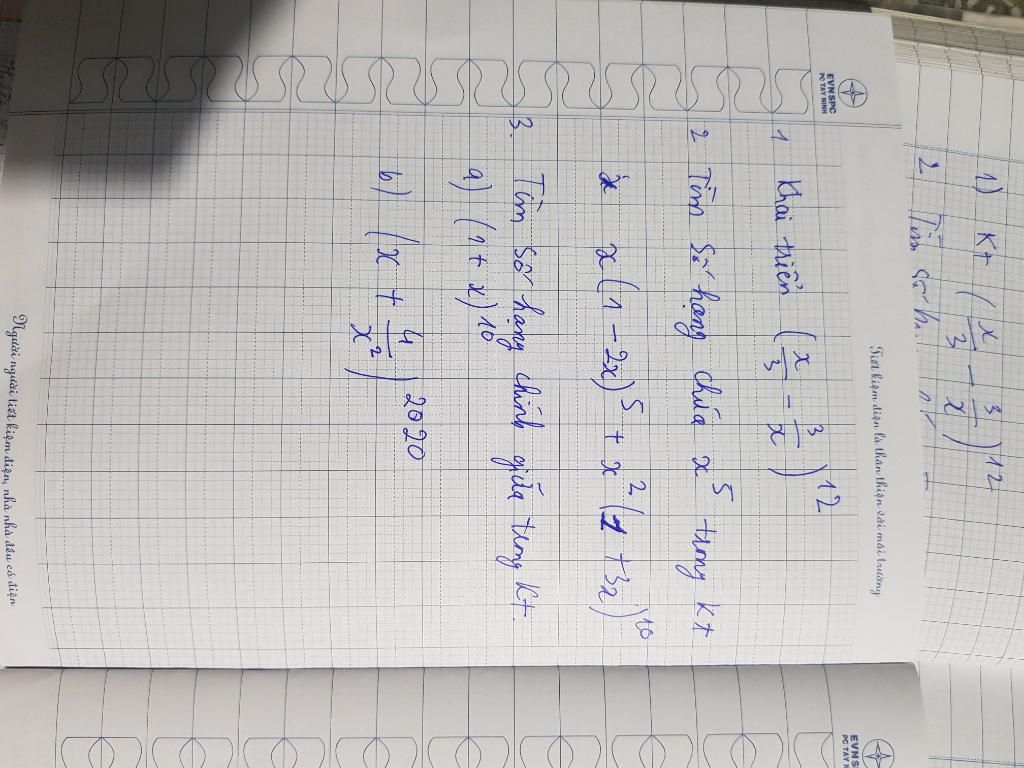 EVNSPC
PC TÂY NINH
Tiết kiệm điện là thân thiện với môi trường
1 Khai triển (x/3 - 3/x)^12
2 Tìm số hạng chứa x^5 trong Kt
x(1 - 2x)^5 + x^2(1 + 3x)^10
3. Tìm số hạng chính giữa trong Kt.
a) (1 + x)^10
b) (x + 4/x^2)^2020
Người người tiết kiệm điện, nhà nhà đều có điện
1) Kt (x/3 - 3/x)^12
2 Tìm số h
EVNS
PC TÂY N